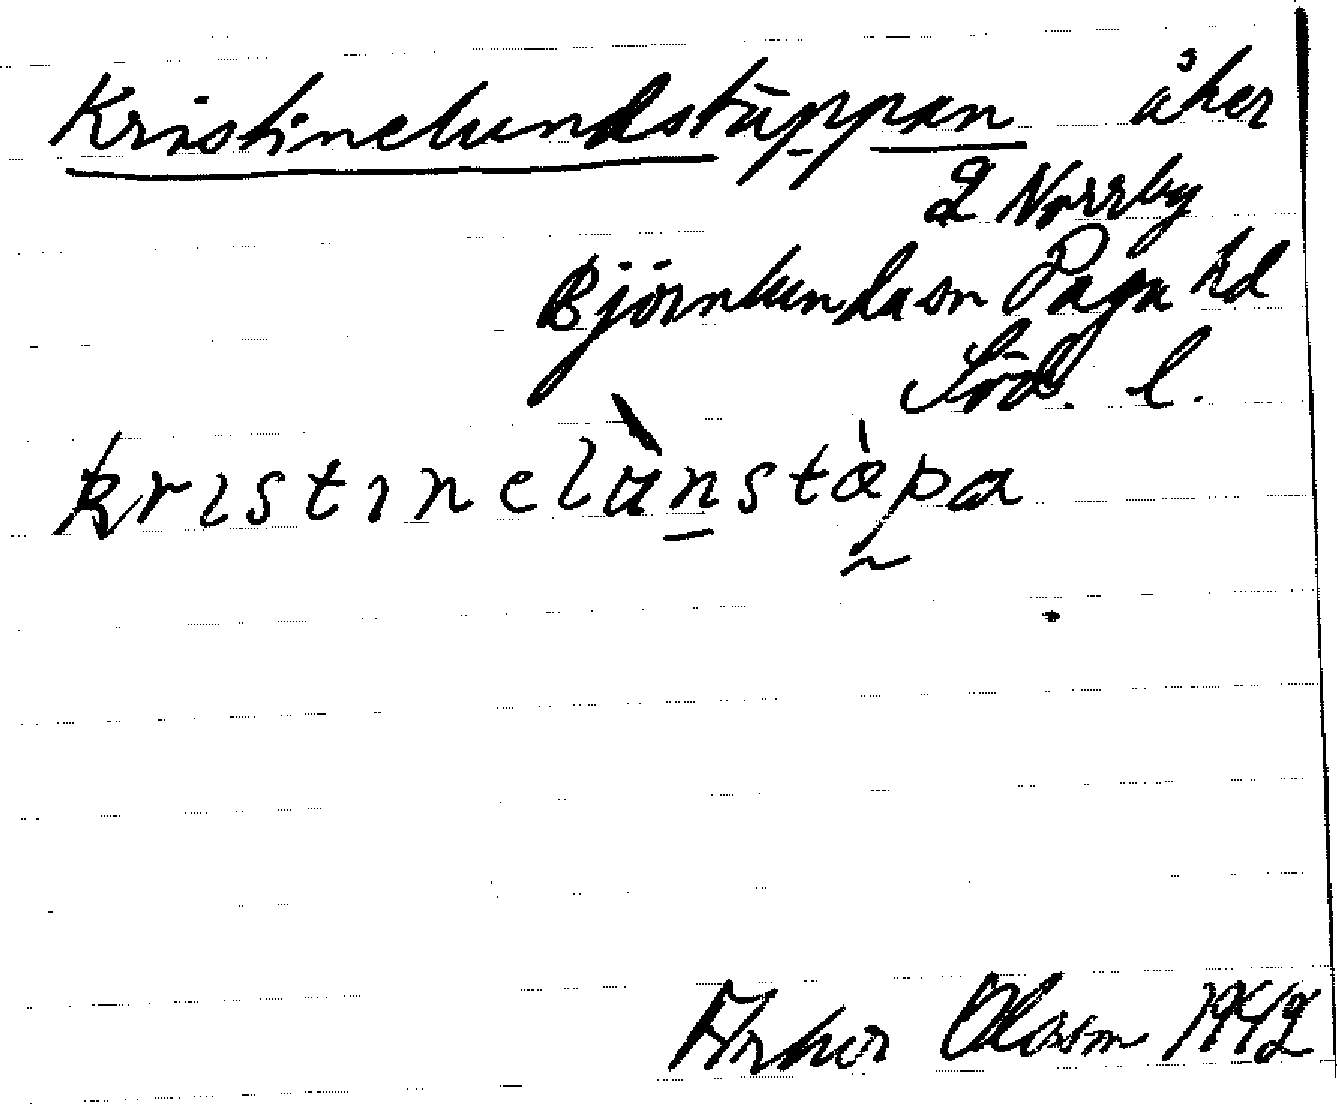 Kristinelundstäppan åker
2 Norrby
Björnlunda sn Daga hd
Söd. l.
kristinelùnstæ̀pa
Olsson 1942